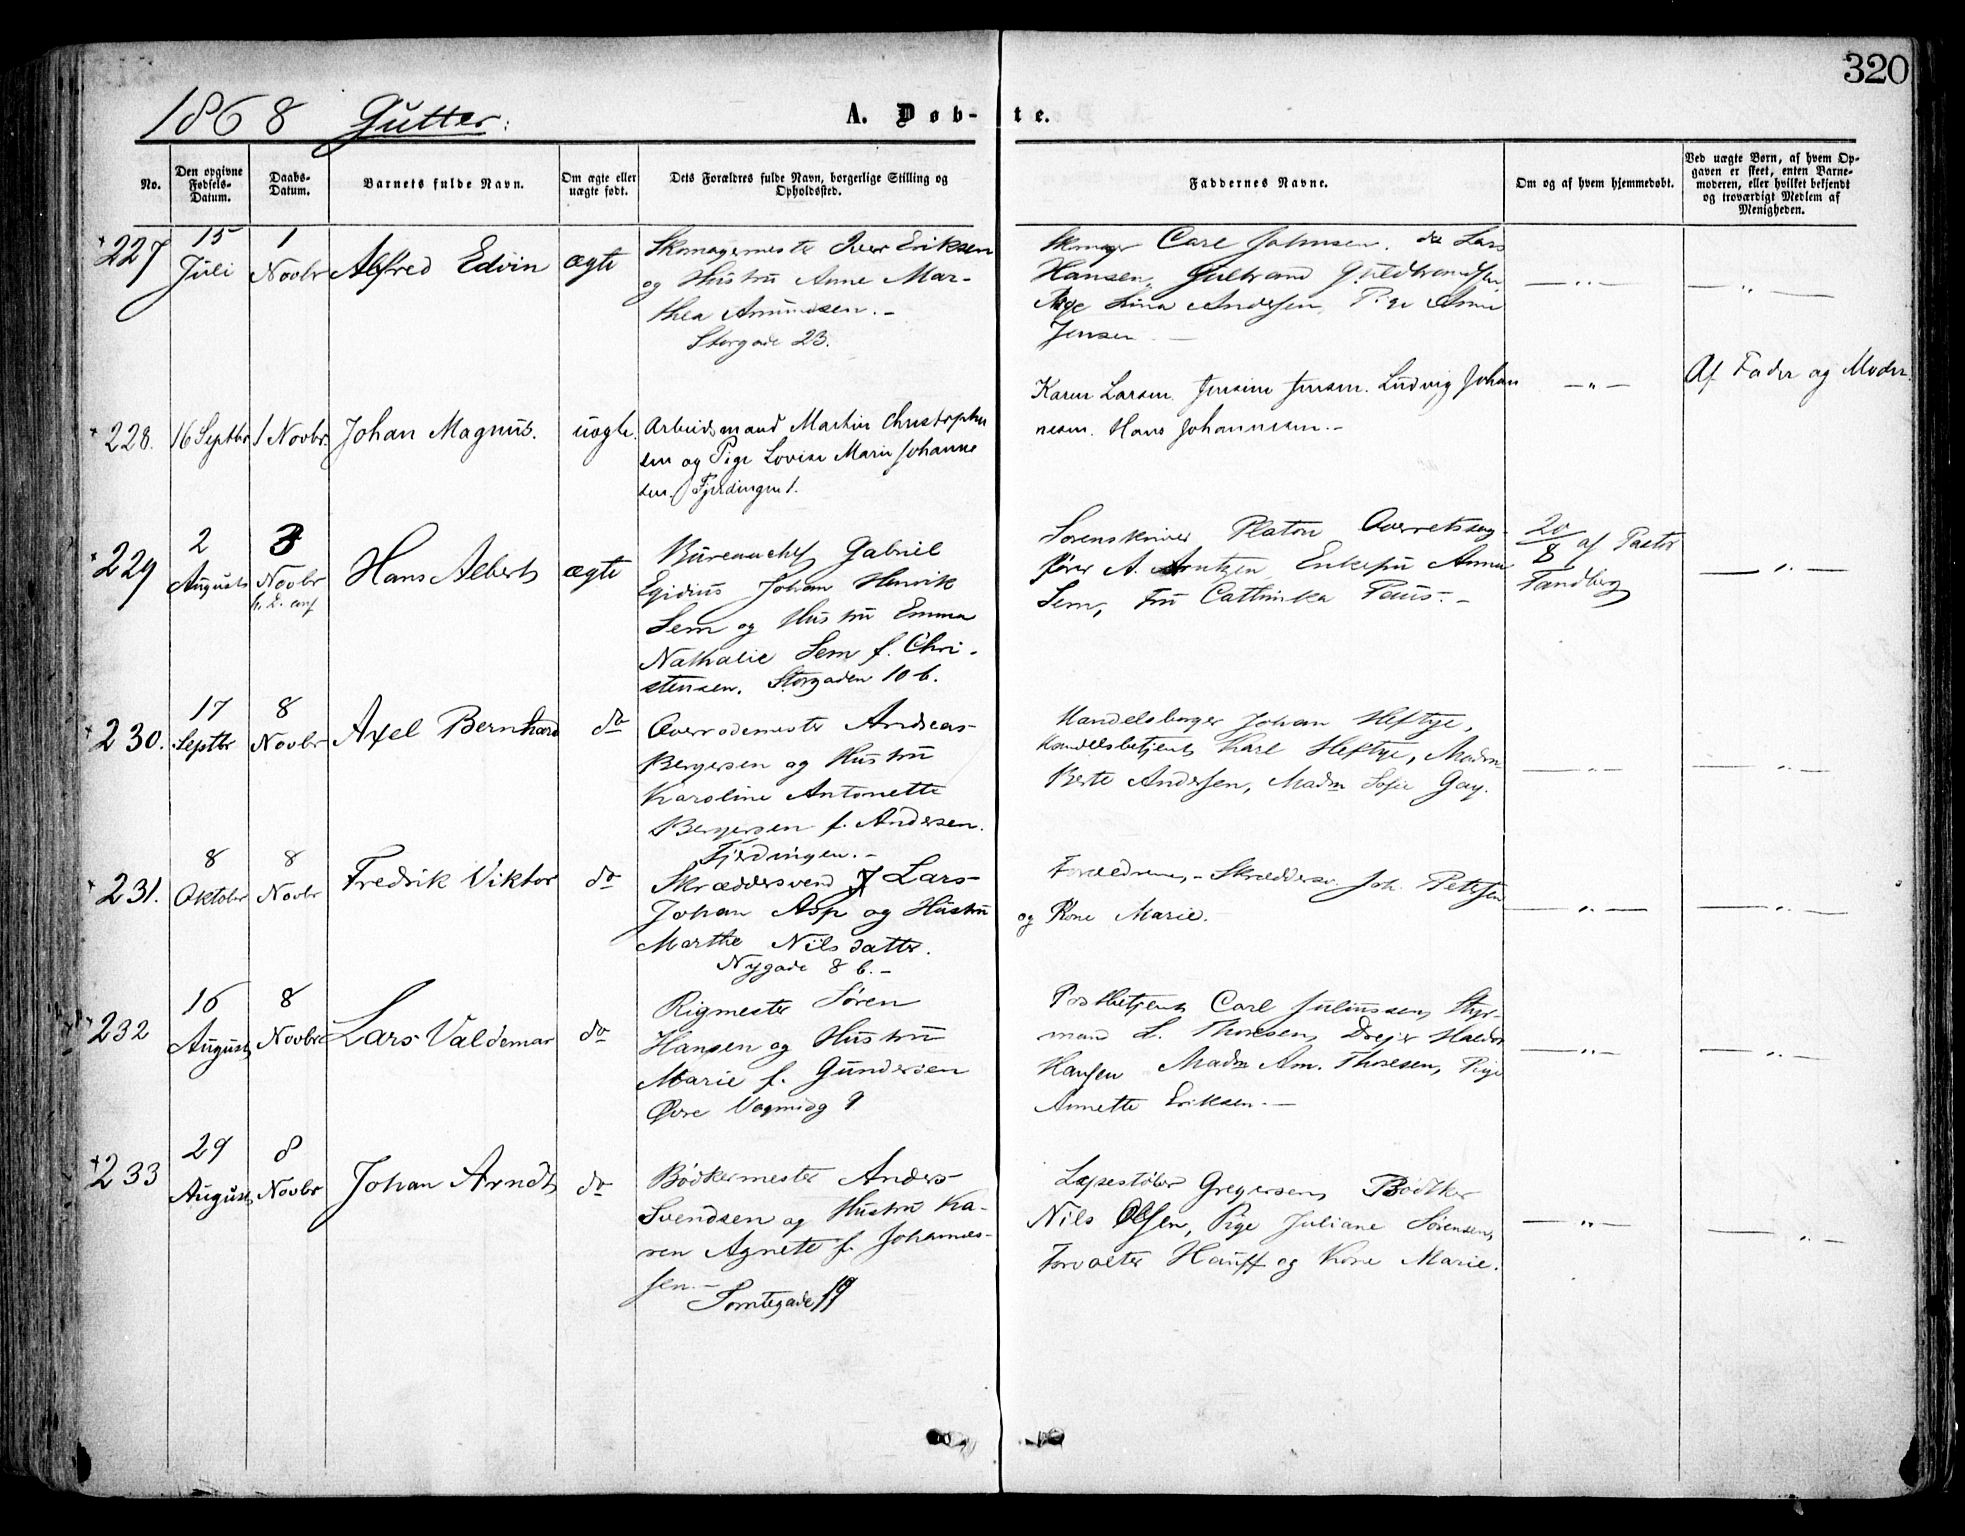 320
1868 Gutter:
A. Døb-te.
No.
Den opgivne Fødsels-Datum.
Daabs-Datum.
Barnets fulde Navn.
Om ægte eller uægte født.
Dets Forældres fulde Navn, borgerlige Stilling og Opholdssted.
Faddernes Navne.
Om og af hvem hjemmedøbt.
Ved uægte Børn, af hvem Opgaven er skeet, enten Barnemoderen, eller hvilket bekjendt og troværdigt Medlem af Menigheden.
227 15 Juli 1 Novbr Alfred Edvin ægte
Skomagermester Iver Eriksen
og Hustru Anne Mar-
thea Amundsen.-
Storgade 23.
Skomager Carl Johnsen. do Lars
Hansen, Gulbrand Guldbrandsen,
Pige Lina Andersen, Pige Anne
Jensen -
— " — — " —
228. 16 Septbr 1 Novbr. Johan Magnus. uægte.
Arbeidsmand Martin Christophe
sen og Pige Lovise Marie Johanne
sen. Fjerdingen 1.
Karen Larsen. Jensine Jensen. Ludvig Johan
nesen. Hans Johannesen.-
— " — Af Fader og Moder.
229 2 August 8 Novbr Hans Albert ægte
Bureauchef Gabriel
Egidius Johan Henrik
Sem og Hustru Emma
Nathalie Sem f. Chri-
stensen. Storgaden 10 b.
Sorenskriver Platou Overretssag-
fører A. Arntzen Enkefru Anna
Sem, Fru Cathinka Paus.-
20/8 af Pastor
Tandberg
— " —
230. 17 Septbr 8 Novbr Axel Bernhard do
Overrodemester Andreas
Bergersen og Hustru
Karoline Antonette
Bergersen f. Andersen.
Fjerdingen.-
Handelsborger Johan Heftye,
Handelsbetjent Karl Heftye, Madm
Berte Andersen, Madm Sofie Gay.
— " — — " —
231. 8 Oktober 8 Novbr Fredrik Viktor do
Skræddersvend Lars
Johan Asp og Hustru
Marthe Nilsdatter.
Nygade 8 b.-
Forældrene,- Skræddersv. Joh. Petersen
og Kone Marie.-
— " — — " —
232 16 August 8 Novbr Lars Valdemar do
Rigmester Søren
Hansen og Hustru
Marie f. Gundersen
Øvre Vogmdg 9
Postbetjent Carl Juliussen, Styr-
mand L. Thoresen, Drejer Haldor
Hansen Madm Am. Thoresen, Pige
Annette Eriksen.-
— " — — " —
233 29 August 8 Novbr Johan Arndt do
Bødkermester Anders
Svendsen og Hustru Ka-
ren Agnete f. Johannes-
sen.-
Tomtegade 19
Læsestøber Gregersen, Bødtker
Nils Olsen, Pige Juliane Sørensen,
Forvalter Hauff og Kone Marie.
— " — — " —